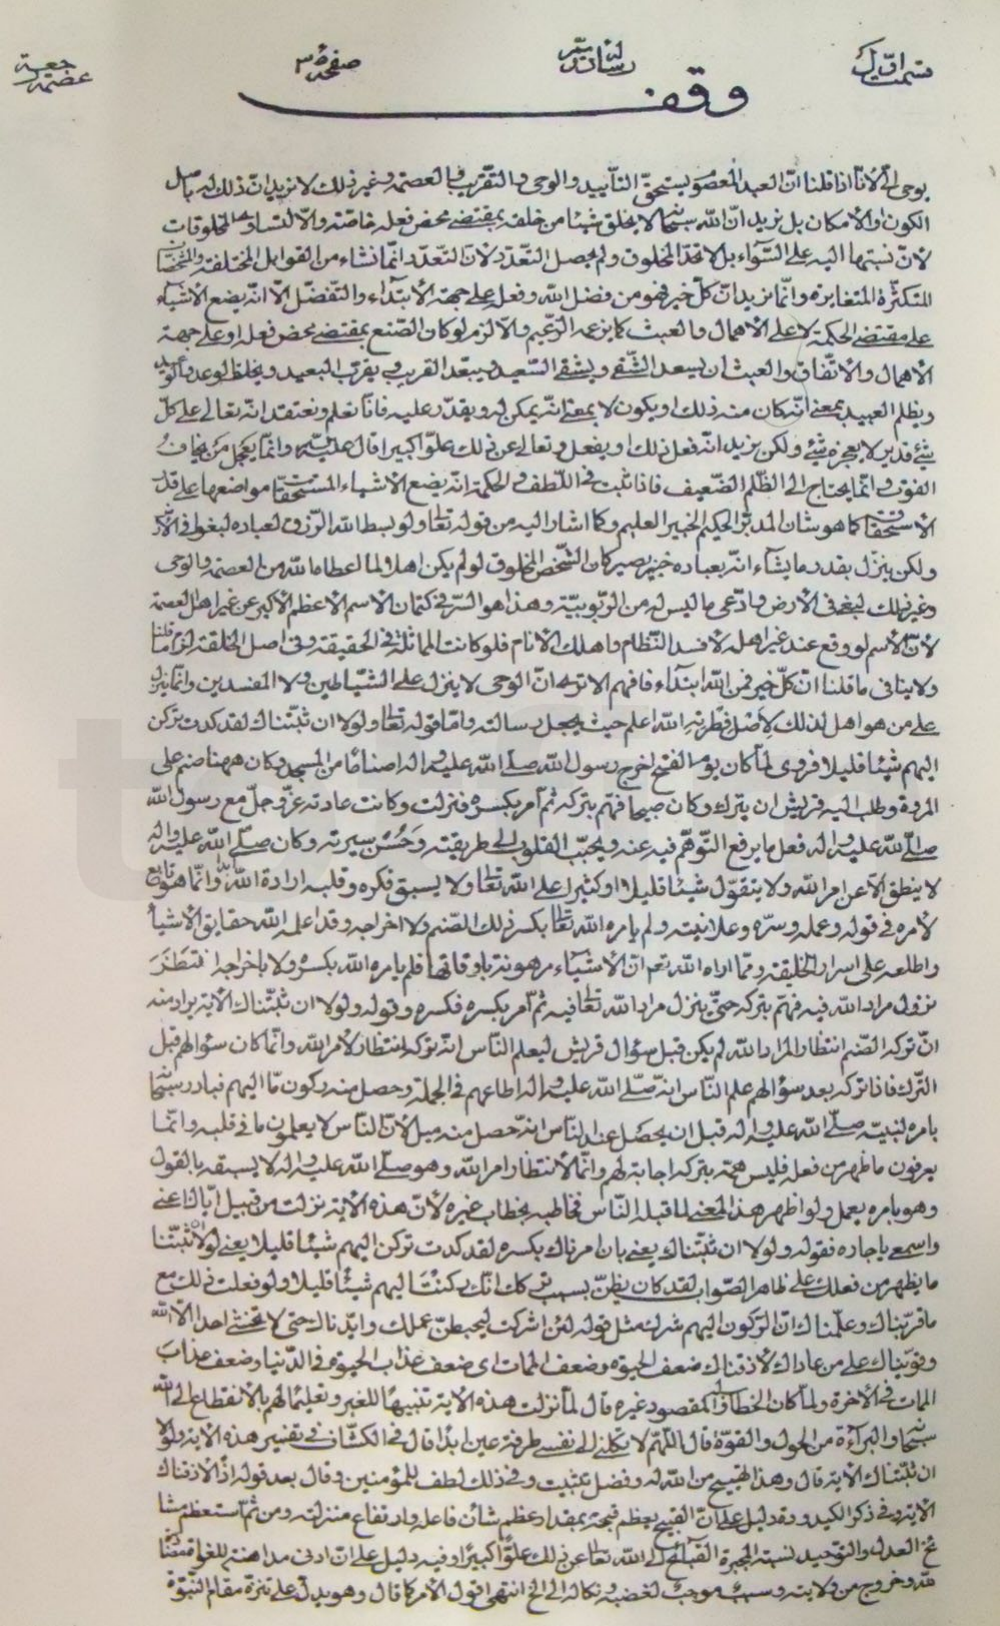 قسمت اول رساله صفحه عصمة رجعة
وقف
يوحى الىّ لأنا اذا قلنا انّ العبد المعصوم يستحق التأييد والوحى والتقريب والعصمة وغير ذلك لا نريد انّ ذلك له باصل
الكون والامكان بل نريد انّ الله سبحانه لا يخلق شيئا من خلقه بمقتضى محض فعله خاصّة والّا لتساوت المخلوقات
لانّ نسبتها اليه على السّواء بل لاتّحد المخلوق ولم يحصل التعدّد لانّ التعدّد انّما نشاء من القوابل المختلفة والمشخصات
المتكثّرة المتغايرة وانّما نريد انّ كلّ خير فهو من فضل الله وفعله على جهة الابتداء والتفضّل الّا انّه يضع الاشياء
على مقتضى الحكمة لا على الاهمال والعبث كما يزعمه الزّعيم والّا لزم لو كان الصّنع بمقتضى محض فعله او على جهة
الاهمال والاتّفاق والعبث ان يسعد الشّقى ويشقى السّعيد ويبعّد القريب ويقرّب البعيد ويخلف الوعد
ويظلم العبيد بمعنى انّه كان منه ذلك او يكون لا بمعنى انّه يمكن له ويقدر عليه فانّا نعلم ونعتقد انّه تعالى على كلّ
شئ قدير لا يعجزه شئ ولكن نريد انّه فعل ذلك او يفعل وتعالى عن ذلك علوّا كبيرا قال عليه السلام وانّما يعجل من يخاف
الفوت وانّما يحتاج الى الظّلم الضّعيف فاذا ثبت فى اللّطف والحكمة انّه يضع الاشياء المستحقّة مواضعها على قدر
الاستحقاق كما هو شان المدبّر الحكيم الخبير العليم وكما اشار اليه من قوله تعالى ولو بسط الله الرّزق لعباده لبغوا فى الارض
ولكن ينزّل بقدر ما يشآء انّه بعباده خبير بصير كان الشّخص المخلوق لو لم يكن اهلا لما اعطاه الله من العصمة والوحى
وغير ذلك لبغى فى الارض وادّعى ما ليس له من الرّبوبيّة وهذا هو السّرّ فى كتمان الاسم الاعظم الاكبر عن غير اهل العصمة
لانّ الاسم لو وقع عند غير اهله لافسد النّظام واهلك الانام فلو كانت المماثلة فى الحقيقة وفى اصل الخلقة لزم ما قلنا
ولا ينافى ما قلنا انّ كلّ خير فمن الله ابتدآء فافهم الا ترى انّ الوحى لا ينزل على الشّياطين ولا المفسدين وانّما ينزل
على من هو اهل لذلك لاصل فطرته الله اعلم حيث يجعل رسالته وامّا قوله تعالى ولولا ان ثبّتناك لقد كدت تركن
اليهم شيئا قليلا فروى لمّا كان يوم الفتح اخرج رسول الله صلّى الله عليه وآله اصناما من المسجد وكان ههنا صنم على
المروة وطلب اليه قريش ان يتركه وكان صبيحا فهمّ بتركه ثم امر بكسره فنزلت وكانت عادته عزّ وجلّ مع رسول الله
صلّى الله عليه وآله فعل ما يرفع التّوهّم فيه عنه ويحبّب القلوب الى طريقته وحُسْن سيرته وكان صلّى الله عليه وآله
لا ينطق الّا عن امر الله ولا يتقوّل شيئا قليلا او كثيرا على الله تعالى ولا يسبق فكره وقلبه ارادة الله وانّما هو تابع
لامره فى قوله وعمله وسرّه وعلانيته ولم يامره الله تعالى بكسر ذلك الصّنم ولا اخراجه وقد اعلمه الله حقايق الاشيآء
واطلعه على اسرار الخليقة وممّا اراه الله تعالى انّ الاشيآء مرهونة باوقاتها فلم يامره الله بكسره ولا باخراجه انتظر
نزول مراد الله فيه فهمّ بتركه حتّى ينزل مراد الله تعالى فيه ثمّ امر بكسره فكسره وقوله ولولا ان ثبّتناك الآية يراد منه
انّ تركه الصّنم انتظارا لمراد الله لم يكن قبل سؤال قريش ليعلم النّاس انّه تركه انتظارا لامر الله وانّما كان سؤالهم قبل
التّرك فاذا تركه بعد سؤالهم علم النّاس انّه صلّى الله عليه وآله اطاعهم فى الجملة وحصل منه ركون مّا اليهم فبادر سبحانه
بامره لنبيّه صلّى الله عليه وآله قبل ان يحصل عند النّاس انّه حصل منه ميل لانّ النّاس لا يعلمون ما فى قلبه وانّما
يعرفون ما ظهر من فعله فليس همّه بتركه اجابة لهم وانّما الانتظار امر الله وهو صلّى الله عليه وآله لا يسبقه بالقول
وهو بامره يعمل ولو اظهر هذا المعنى لما قبله النّاس فخاطبه بخطاب غيره لانّ هذه الآية نزلت من قبيل ايّاك اعنى
واسمعى يا جارة فقوله ولولا ان ثبّتناك يعنى بان امرناك بكسره لقد كدت تركن اليهم شيئا قليلا يعنى لولا ان ثبّتنا
ما يظهر من فعلك على ظاهر الصّواب لقد كان يظنّ بسبب تركك انّك ركنت اليهم شيئا قليلا ولو فعلت ذلك مع
ما قرّبناك وعلّمناك انّ الرّكون اليهم شرك مثل قوله لئن اشركت ليحبطنّ عملك وايّدناك حتى لا تخشى احدا الّا الله
وقوّيناك على من عاداك لاذقناك ضعف الحيوة وضعف الممات اى ضعف عذاب الحيوة فى الدّنيا وضعف عذاب
الممات فى الآخرة ولمّا كان الخطاب والمقصود غيره قال لمّا نزلت هذه الآية تنبيها للغير وتعليما لهم بالانقطاع الى الله
سبحانه والبرآءة من الحول والقوّة قال اللّهمّ لا تكلنى الى نفسى طرفة عين ابدا قال فى الكشّاف فى تفسير هذه الآية ولولا
ان ثبّتناك الآية قال وهذا تهييج من الله له وفضل تثبيت وفى ذلك لطف للمؤمنين وقال بعد قوله اذًا لاذقناك
الآية وفى ذكر الكيدودة دليل على انّ القبيح يعظم قبحه بمقدار عظم شأن فاعله وارتفاع منزلته ومن ثمّ استعظم مشايخ
العدل والتوحيد نسبة المجبرة القبائح الى الله تعالى عن ذلك علوّا كبيرا وفيه دليل على انّ ادنى مداهنة للغواة مضادّة
لله وخروج من ولايته وسبب موجب لغضبه ونكاله الى الخ انتهى اقول الامر كما قال وهو يدلّ على تنزّه مقام النّبوّة